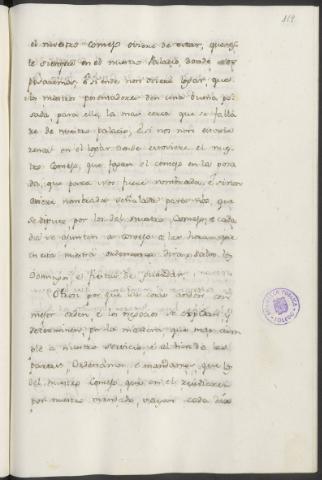 119
el nuestro Consejo oviere de estar, que se
le siempre en el nuestro Palacio, donde nos
posaremos, è si ende non oviere logar, que
los nuestros posentadores den una buena po
sada, para ello, la mas cerca que se fallà
re de nuestro palacio, È si nos non estovie
remos en el logar donde estoviere el nues
tro Consejo, que fagan el consejo en la posa
da, que para esto fuere nombrada, È si non
oviere nombrada señalada para ello, que
se dipute por los del nuestro Consejo, è cada
dia se ayunten a Consejo a las horas que
en esta nuestra ordenanza dirà, salvo los
Domingos, è fiestas de guardar.
Otrosi por que las cosas anden con
mejor orden, è los negocios se espidan y
determinen, por la manera que mas cum
ple a nuestro servicio, è al bien de las
partes, Ordenamos, è mandamos, que los
del nuestro Consejo, que en èl residieren
por nuestro mandado, vayan cada dia
TOLEDO